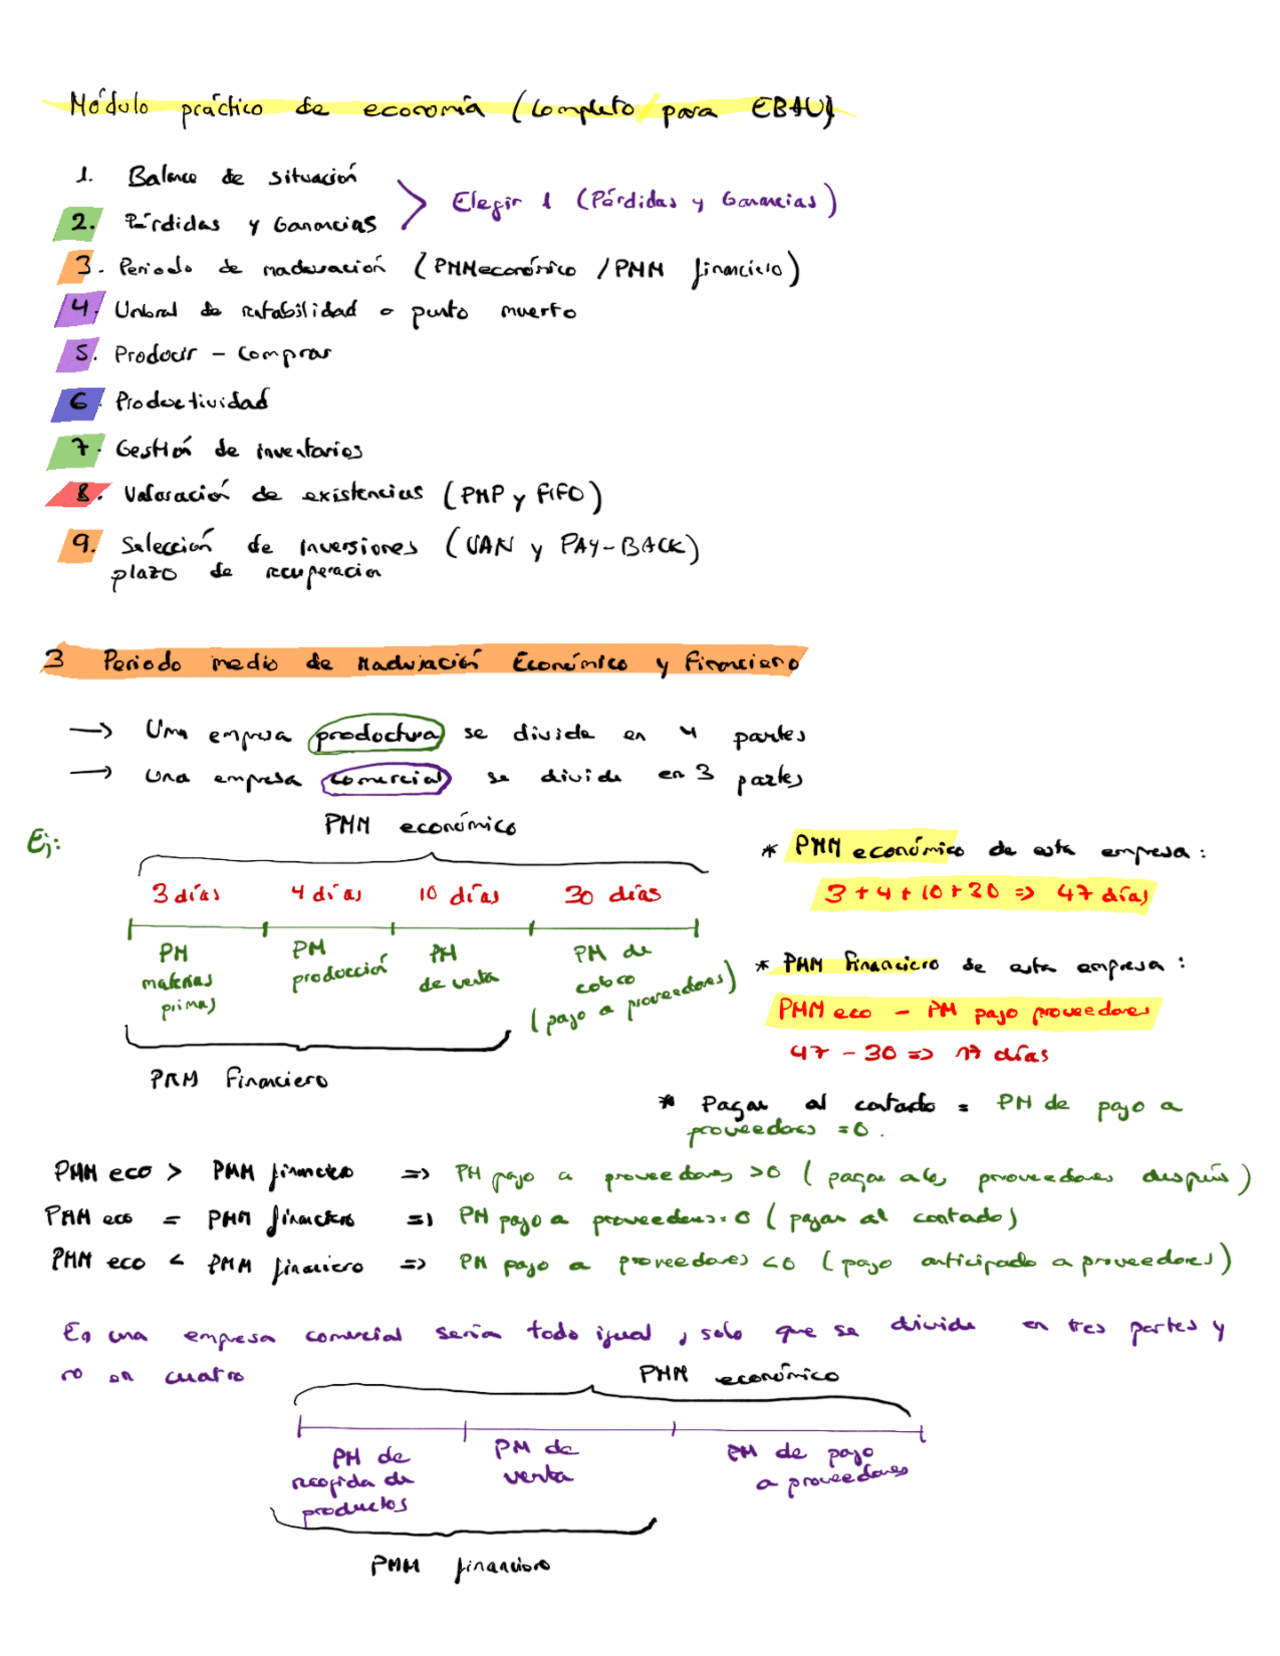 Módulo práctico de economía (Completo para EBAU)
1. Balance de situación
2. Pérdidas y Ganancias
Elegir 1 (Pérdidas y Ganancias)
3. Periodo de maduración (PMMeconómico / PMM financiero)
4. Umbral de rentabilidad o punto muerto
5. Producir - Comprar
6. Productividad
7. Gestión de inventarios
8. Valoración de existencias (PMP y FIFO)
9. Selección de inversiones (VAN y PAY-BACK)
plazo de recuperacion
3 Periodo medio de Maduración Económico y Financiero
→ Una empresa productura se divide en 4 partes
→ Una empresa comercial se divide en 3 partes
Ej:
PMM económico
3 días 4 días 10 días 30 días
PM materias primas
PM producción
PM de venta
PM de cobro (pago a proveedores)
PMM Financiero
* PMM económico de esta empresa:
3 + 4 + 10 + 30 => 47 días
* PMM Financiero de esta empresa:
PMM eco - PM pago proveedores
47 - 30 => 17 días
* Pagar al contado = PM de pago a
proveedores = 0.
PMM eco > PMM financiero => PM pago a proveedores >0 ( pagar a los proveedores después)
PMM eco = PMM financiero => PM pago a proveedores = 0 ( pagar al contado)
PMM eco < PMM financiero => PM pago a proveedores <0 ( pago anticipado a proveedores)
En una empresa comercial sería todo igual, solo que se divide en tres partes y
no en cuatro
PMM económico
PM de recogida de productos
PM de venta
PM de pago a proveedores
PMM financiero